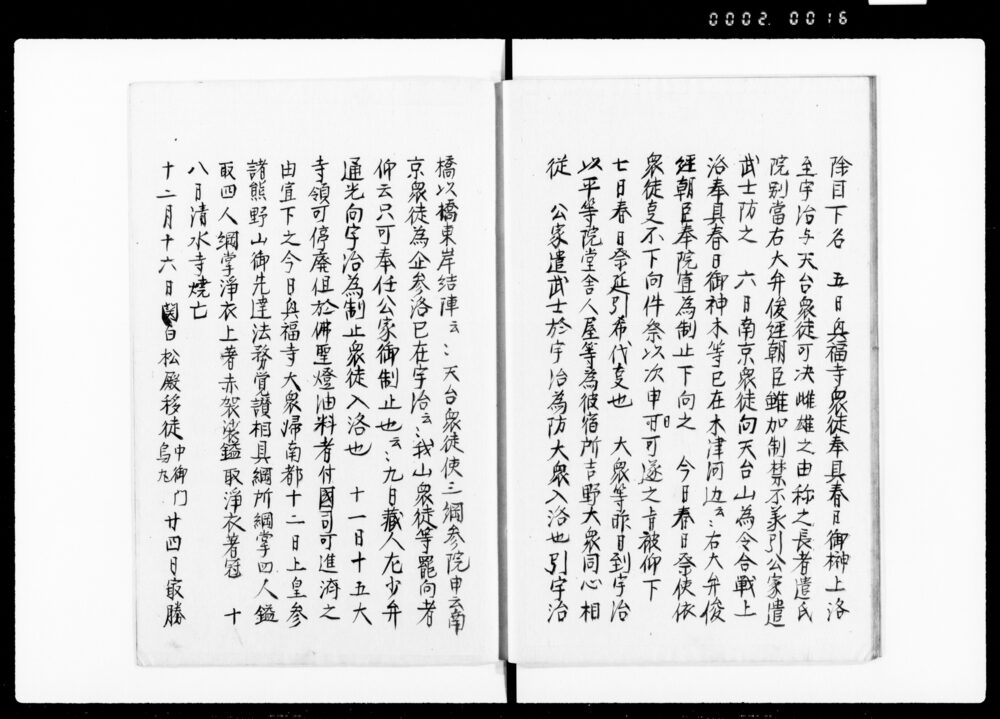 0002.0016
除目下名　五日興福寺衆徒奉具春日御榊上洛
至宇治与天台衆徒可决雌雄之由称之長者遣氏
院別當右大弁俊経朝臣雖加制禁不羕引公家遣
武士防之　六日南京衆徒向天台山為令合戰上
洛奉具春日御神木等已在木津河辺云〻右大弁俊
経朝臣奉院宣為制止下向之　今日春日祭使依
衆徒叓不下向件祭以次申酉可遂之旨被仰下
七日春日祭延引希代叓也　大衆等昨日到宇治
以平等院堂舎人屋等為彼宿所吉野大衆同心相
従　公家遣武士於宇治為防大衆入洛也引宇治
橋以橋東岸結陣云〻天台衆徒使三綱参院申云南
京衆徒為企参洛已在宇治云〻我山衆徒等罷向者
仰云只可奉任公家御制止也云〻九日藏人左少弁
通光向宇治為制止衆徒入洛也　十一日十五大
寺領可停廃但於佛聖燈油料者付國司可進済之
由宣下之今日興福寺大衆帰南都十二日上皇参
諸熊野山御先達法務覚讃相具綱所綱掌四人鎰
取四人綱掌淨衣上著赤袈裟鎰取淨衣著冠　十
八日清水寺燒亡
十二月十六日関白松殿移徒中御门烏丸　廿四日最勝